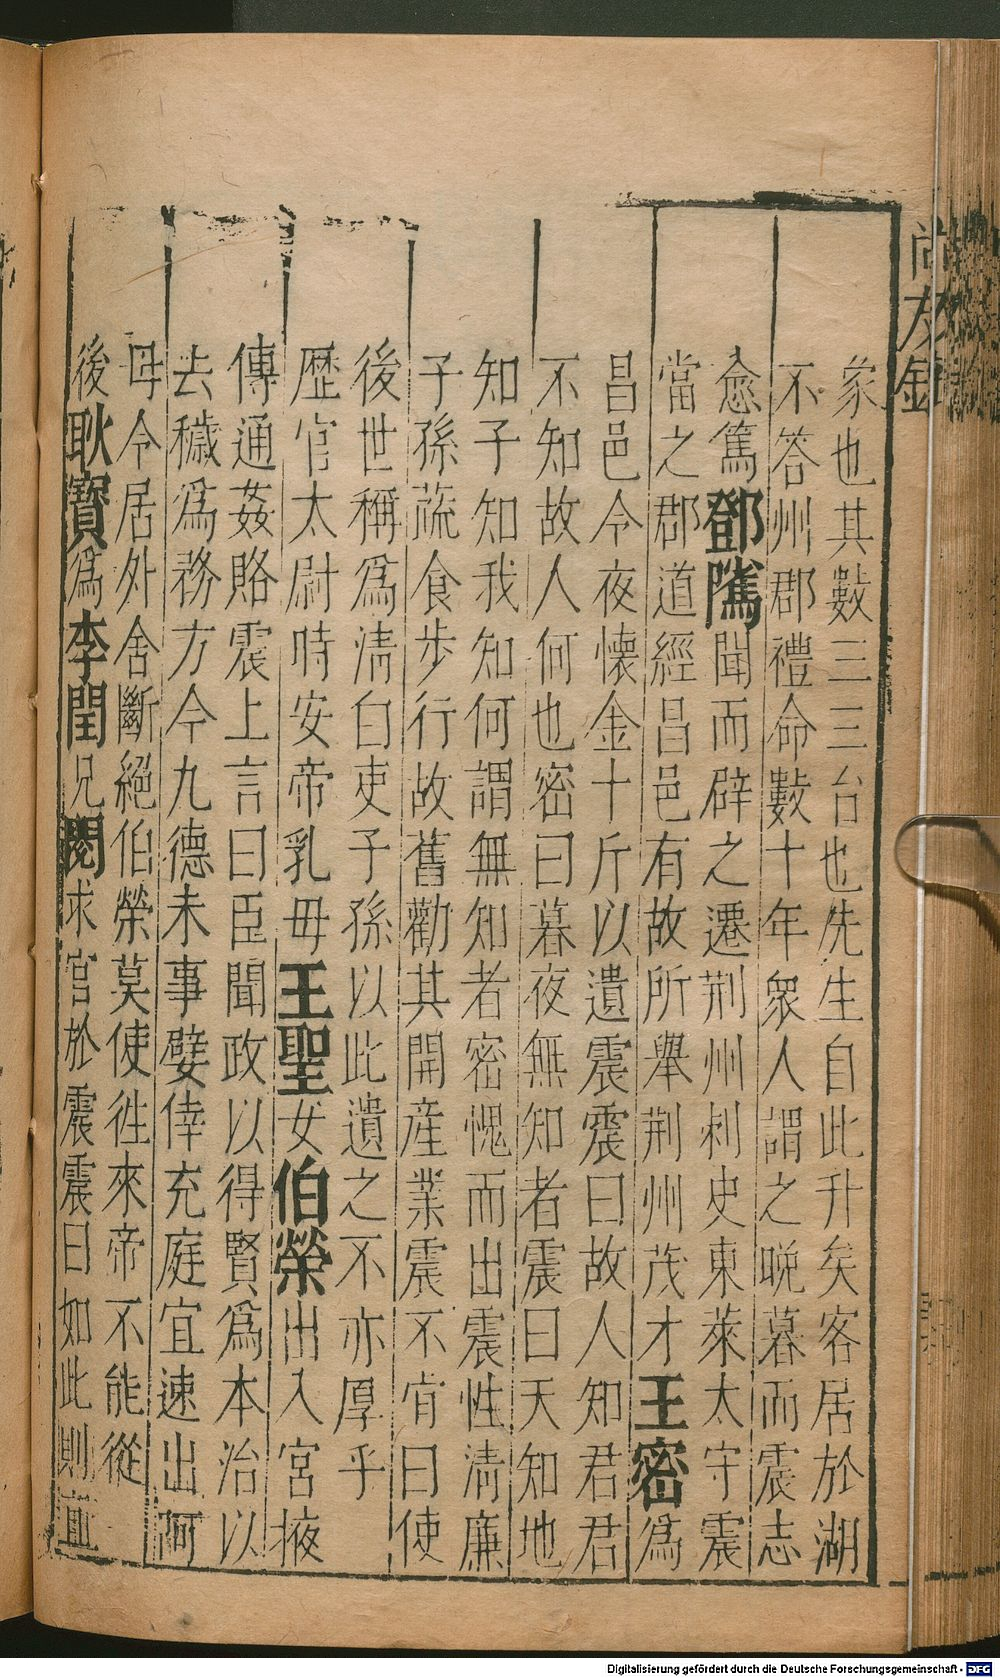 尚友錄
象也其數三三台也先生自此升矣客居於湖
不答州郡禮命數十年衆人謂之晩暮而震志
愈篤鄧隲聞而辟之遷荆州刺史東萊太守震
當之郡道經昌邑有故所舉荆州茂才王密爲
昌邑令夜懷金十斤以遺震震曰故人知君君
不知故人何也密曰暮夜無知者震曰天知地
知子知我知何謂無知者密愧而出震性清廉
子孫蔬食步行故舊勸其開産業震不肯曰使
後世稱爲清白吏子孫以此遺之不亦厚乎
歷官太尉時安帝乳母王聖女伯榮出入宮掖
傳通姦賂震上言曰臣聞政以得賢爲本治以
去穢爲務方今九德未事嬖倖充庭宜速出阿
母令居外舍斷絕伯榮莫使徃來帝不能從
後耿寶爲李閏兄閏求官於震震曰如此則直
Digitalisierung gefördert durch die Deutsche Forschungsgemeinschaft - DFG